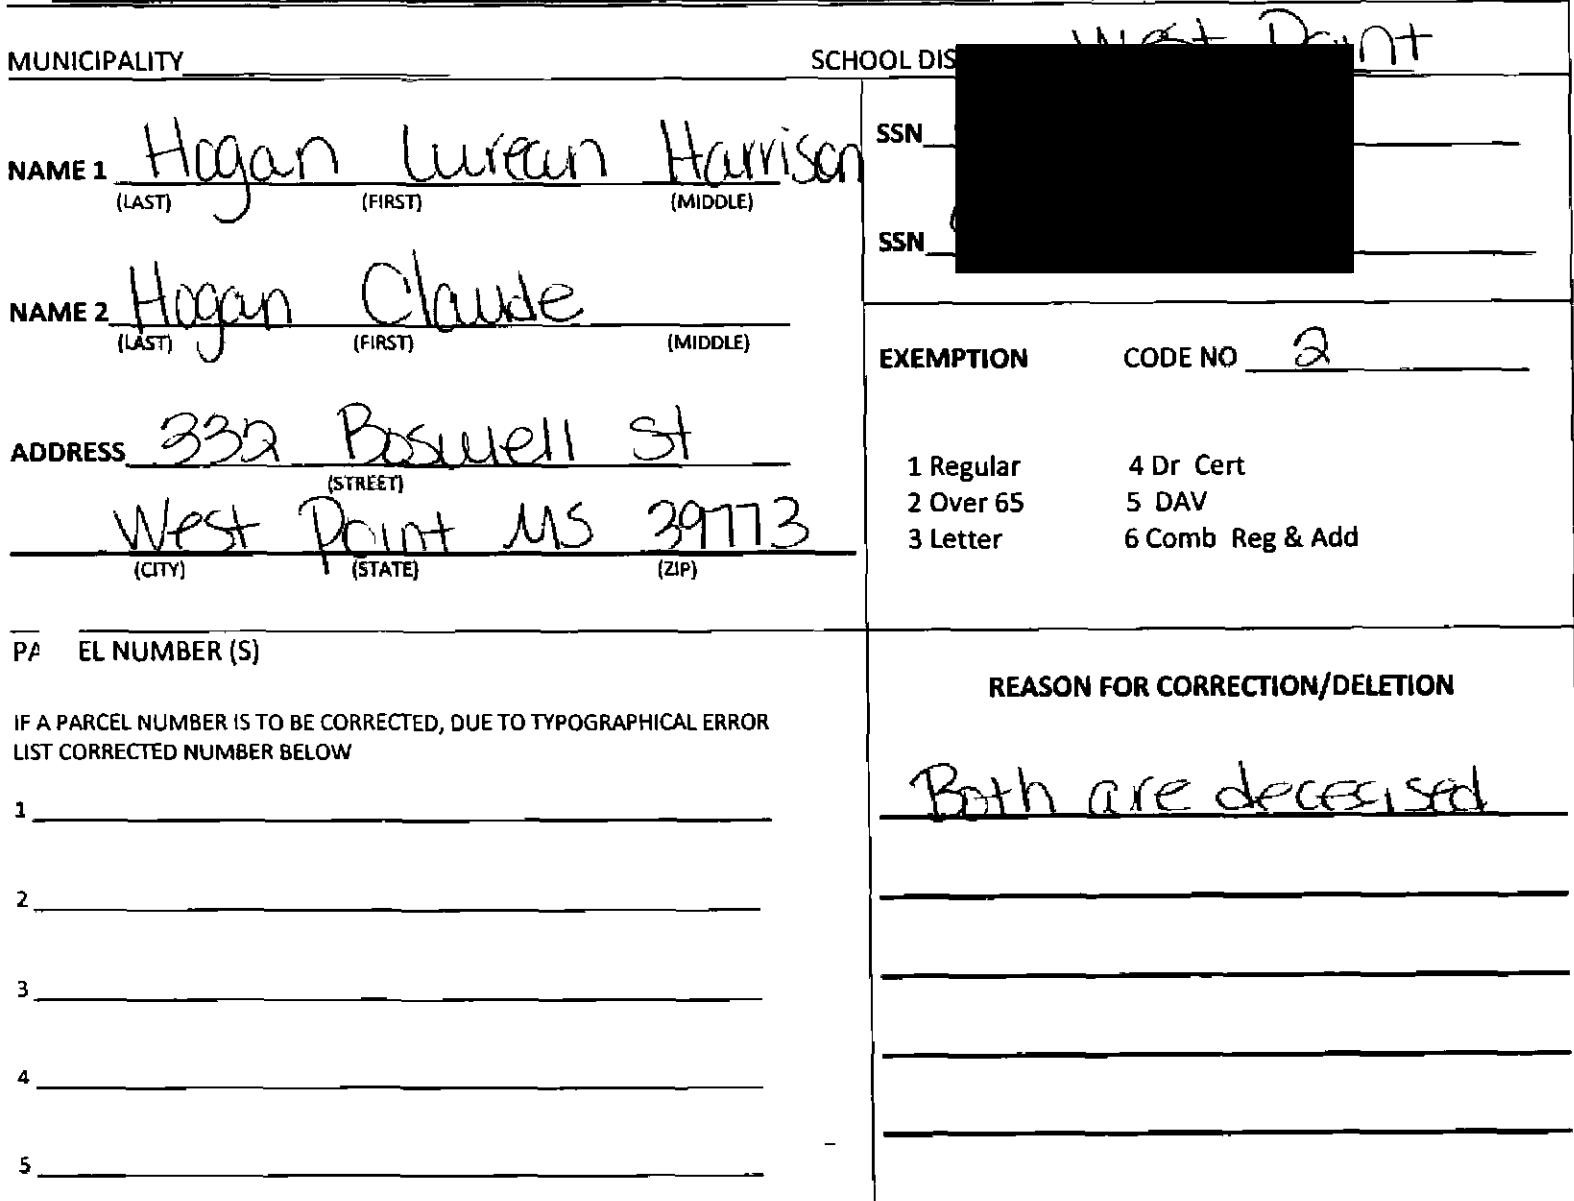 MUNICIPALITY SCHOOL DIS West Point
NAME 1 Hogan Lurean Harrison SSN
(LAST) (FIRST) (MIDDLE)
SSN
NAME 2 Hogan Claude
(LAST) (FIRST) (MIDDLE)
EXEMPTION CODE NO 2
ADDRESS 332 Boswell St
(STREET)
West Point MS 39773
(CITY) (STATE) (ZIP)
1 Regular 4 Dr Cert
2 Over 65 5 DAV
3 Letter 6 Comb Reg & Add
PA EL NUMBER (S)
IF A PARCEL NUMBER IS TO BE CORRECTED, DUE TO TYPOGRAPHICAL ERROR
LIST CORRECTED NUMBER BELOW
1
2
3
4
5
REASON FOR CORRECTION/DELETION
Both are deceased